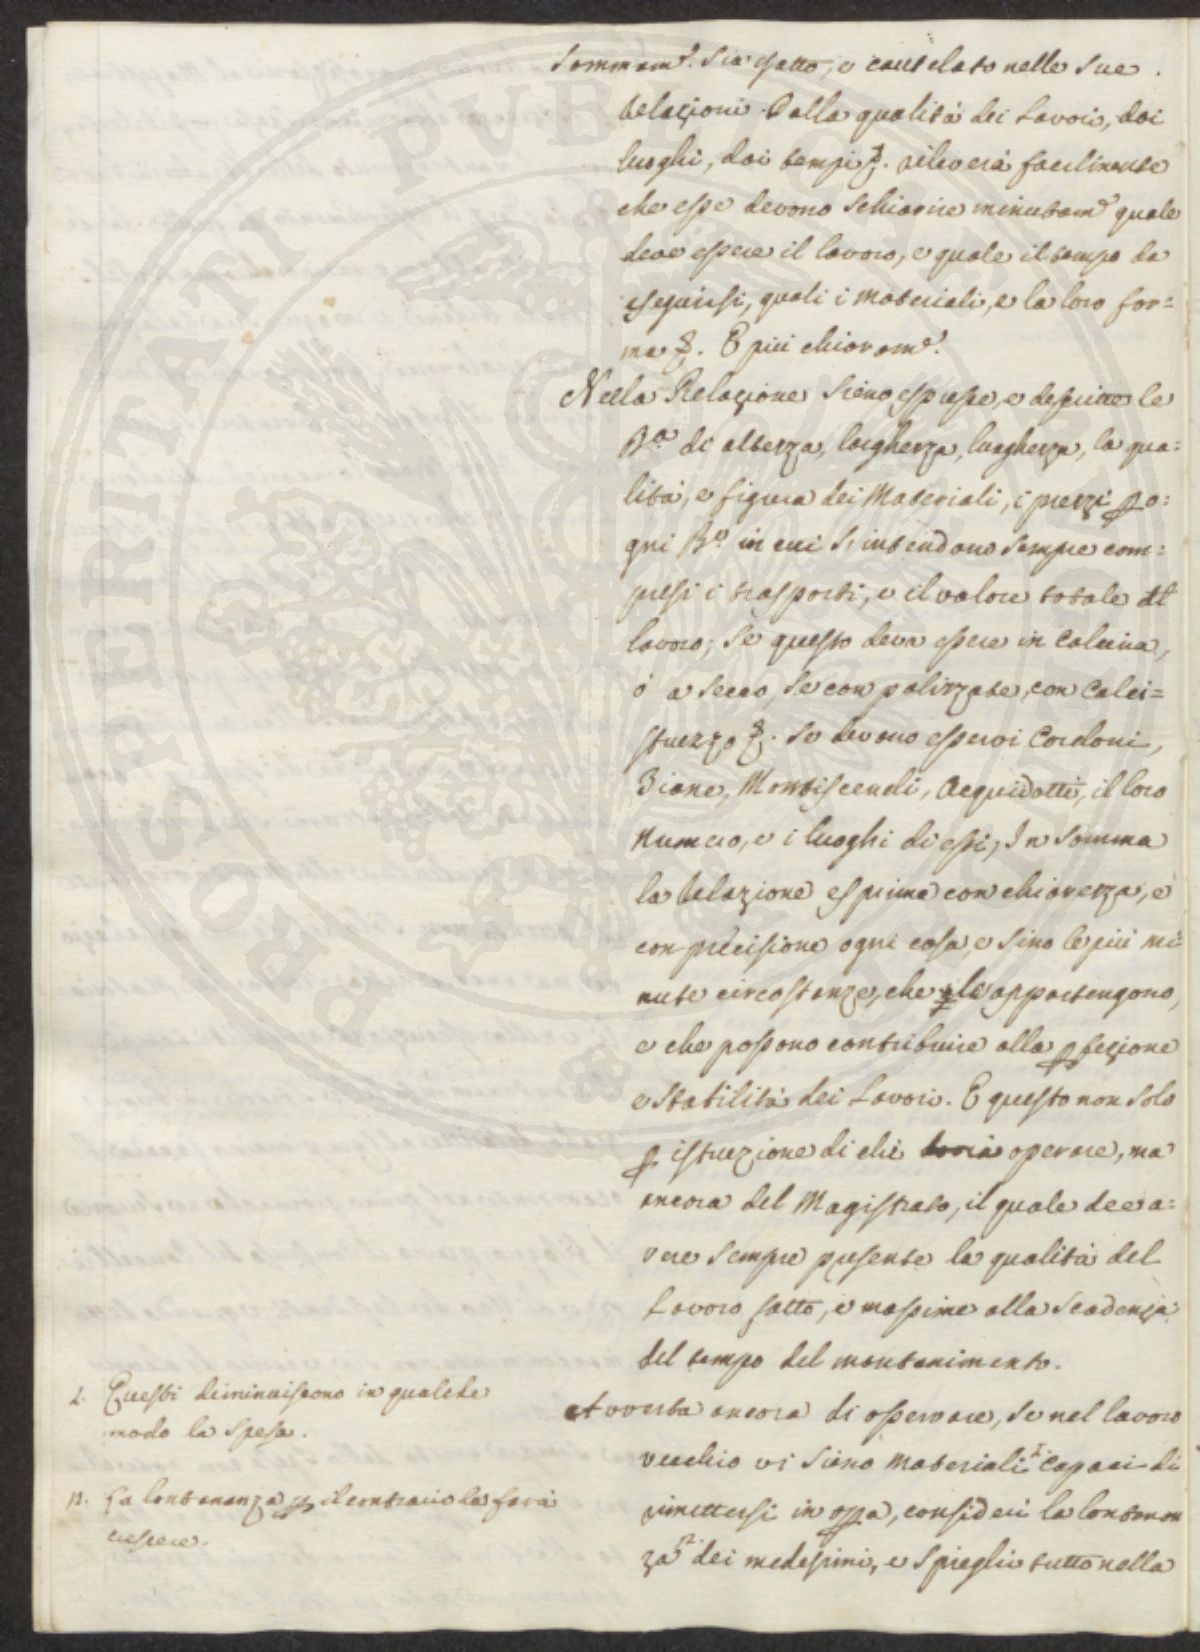 sommam.e sia esatto, e cautelato nelle sue
Relazioni. Dalla qualità dei Lavori, dai
luoghi, dai tempi &. rileverà facilmente
che esse devono schiarire minutam.e quale
deve essere il lavoro, e quale il tempo da
eseguirsi, quali i Materiali, e la loro for=
ma &. E più chiaram.e
Nella Relazione sieno espresse, e descritte le
B.a di altezza, larghezza, lunghezza, la qua=
lità, e figura dei Materiali, i prezzi p o=
gni B.a in cui s'intendono sempre com=
presi i trasporti, e il valore totale del
lavoro; Se questo deva essere in Calcina,
ò a secco, se con palizzate, con Calci=
struzzo &. Se devono esservi Cordoni,
Bione, Montiscendi, Acquidotti, il loro
Numero, e i luoghi di essi; In somma
la Relazione esprima con chiarezza, e
con precisione ogni cosa, e sino le più mi
nute circostanze, che le appartengono,
e che possono contribuire alla pfezione
e stabilità dei Lavori. E questo non solo
p istruzione di chi dovrà operare, ma
ancora del Magistrato, il quale dee a=
vere sempre presente la qualità del
Lavoro fatto, e massime alla scadenza
del tempo del mantenimento.
Avverta ancora di osservare, se nel lavoro
vecchio vi sieno Materiali 1. capaci di
rimettersi in opa, consideri la lontanan
za 2. dei medesimi, e spieghi tutto nella
1. Questi diminuiscono in qualche
modo la spesa.
2. La lontananza p il contrario la farà
crescere.